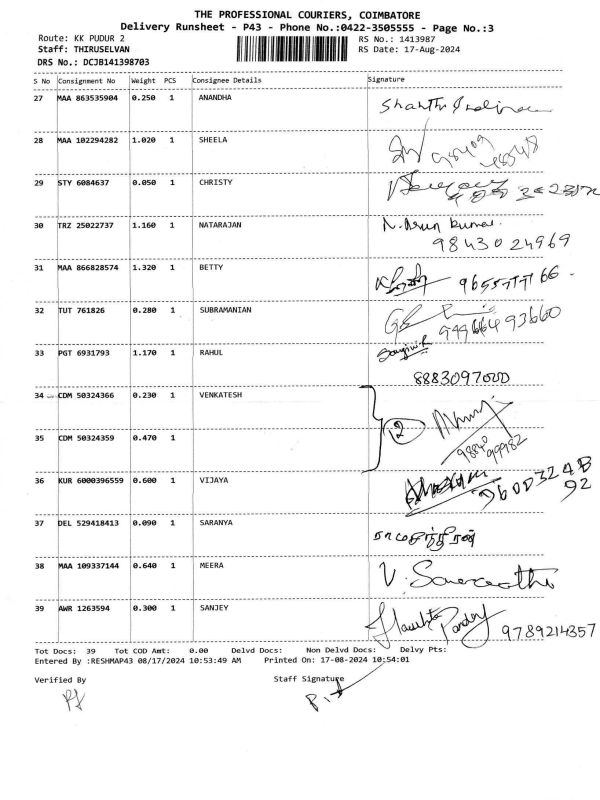 THE PROFESSIONAL COURIERS, COIMBATORE
Delivery Runsheet - P43 - Phone No.:0422-3505555 - Page No.:3
Route: KK PUDUR 2 RS No.: 1413987
Staff: THIRUSELVAN RS Date: 17-Aug-2024
DRS No.: DCJB141398703
S No Consignment No Weight PCS Consignee Details Signature
27 MAA 863535904 0.250 1 ANANDHA Shanthi
28 MAA 102294282 1.020 1 SHEELA 98409 48548
29 STY 6084637 0.050 1 CHRISTY
30 TRZ 25022737 1.160 1 NATARAJAN N. Arun Kumar.
9843024969
31 MAA 866828574 1.320 1 BETTY 9655777166
32 TUT 761826 0.280 1 SUBRAMANIAN
33 PGT 6931793 1.170 1 RAHUL
8883097000
34 CDM 50324366 0.230 1 VENKATESH 2
35 CDM 50324359 0.470 1 98840 99982
36 KUR 6000396559 0.600 1 VIJAYA
37 DEL 529418413 0.090 1 SARANYA ராமசந்திரன்
38 MAA 109337144 0.640 1 MEERA V.
39 AWR 1263594 0.300 1 SANJEY Pandey 9789214357
Tot Docs: 39 Tot COD Amt: 0.00 Delvd Docs: Non Delvd Docs: Delvy Pts:
Entered By :RESHMAP43 08/17/2024 10:53:49 AM Printed On: 17-08-2024 10:54:01
Verified By Staff Signature